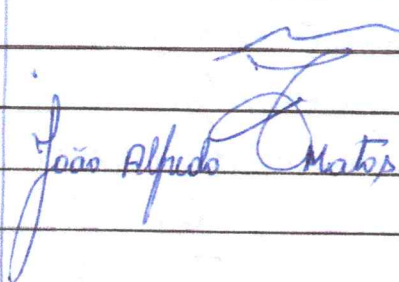 João Alfredo Matos